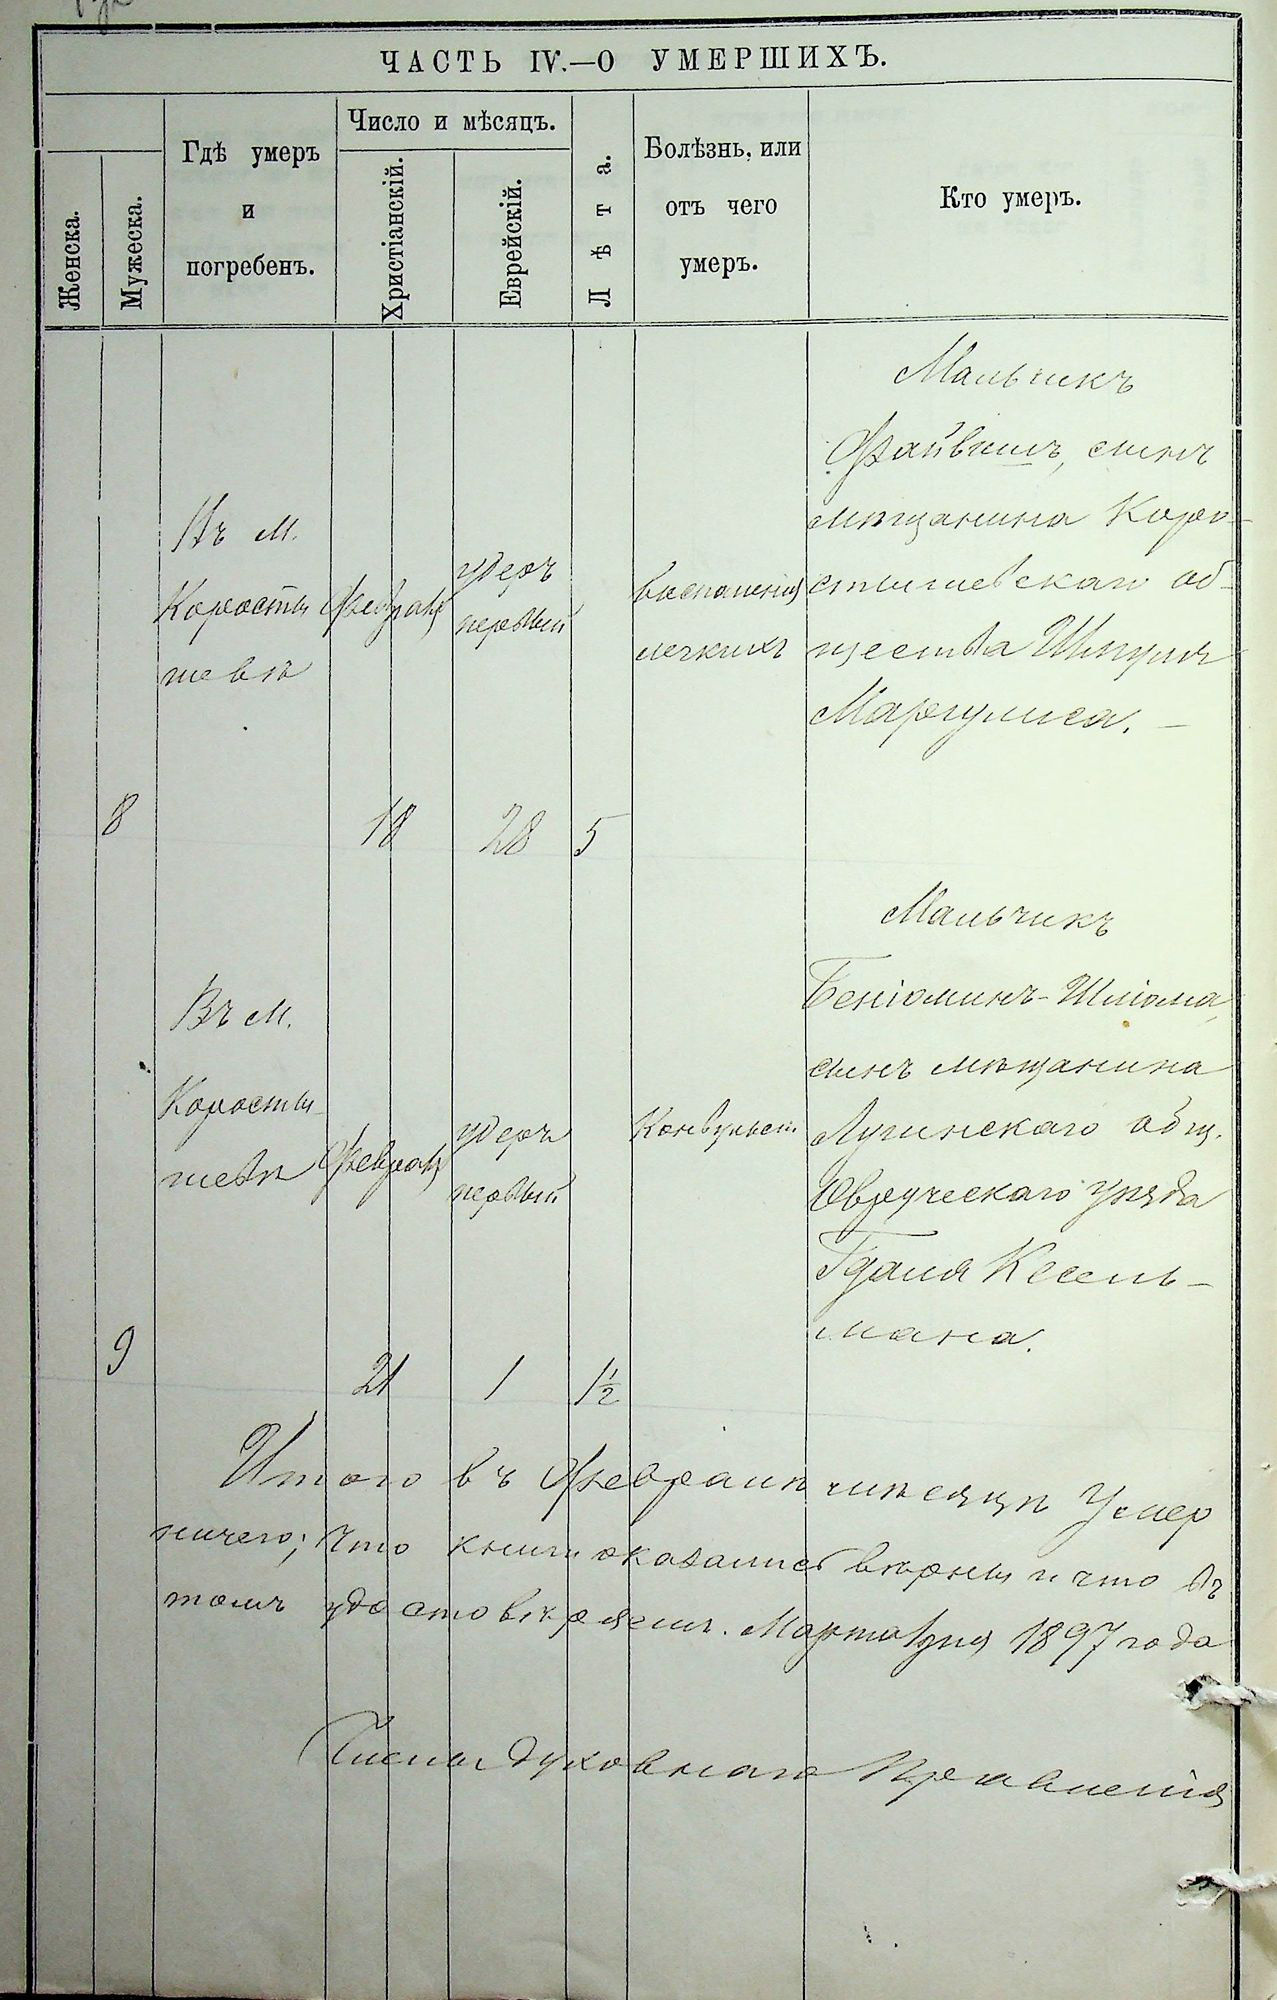 ЧАСТЬ IV.—О УМЕРШИХЪ.
Женска.
Мужеска.
Гдѣ умеръ
и
погребенъ.
Число и мѣсяцъ.
Христіанскій.
Еврейскій.
Лѣта.
Болѣзнь, или
отъ чего
умеръ.
Кто умеръ.
8
Въ м.
Коросты
шевѣ
Февраля
18
удеръ
первый
28
5
воспаленія
легкихъ
Мальчикъ
Файвишъ, сынъ
мѣщанина Коро-
стышевскаго об-
щества Шпуля
Маргулиса. —
9
Въ м.
Коросты-
шевѣ
Февраля
21
удеръ
первый
1
1½
Конвульсіи
Мальчикъ
Беніоминъ-Шліома,
сынъ мѣщанина
Лугинскаго общ.
Овручскаго уѣзда
Гдаля Кесель-
мана.
Итого въ Февралѣ мѣсяцѣ умер
ничего; что книги оказались вѣрны и что въ
томъ удостовѣряемъ. Марта дня 1897 года
Члены духовнаго Правленія